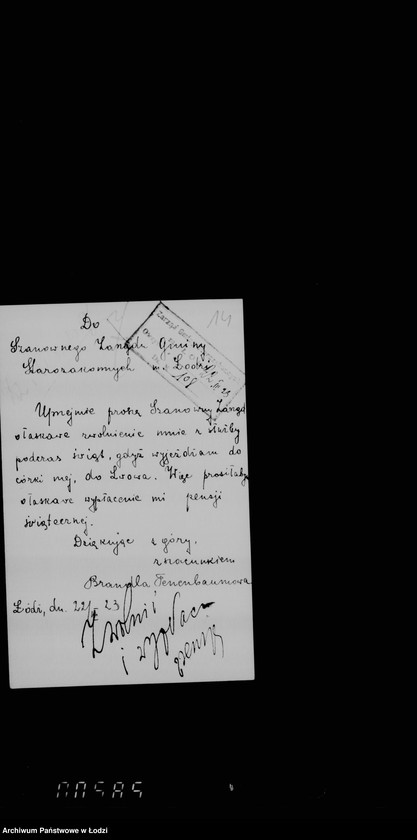 14
Do
Szanownego Zarządu Gminy
Starozakonnych w m. Łodzi
Zarząd
108
Uprzejmie proszę Szanowny Zarząd
o łaskawe zwolnienie mnie z służby
podczas świąt, gdyż wyjeżdżam do
córki mej, do Lwowa. Więc prosiłabym
o łaskawe wypłacenie mi pensji
świątecznej.
Dziękując z góry,
z szacunkiem
Brandla Tenenbaumowa
Łódź, dn. 22/ 23
Zwolnić
i wypłacić
pensję
Archiwum Państwowe w Łodzi